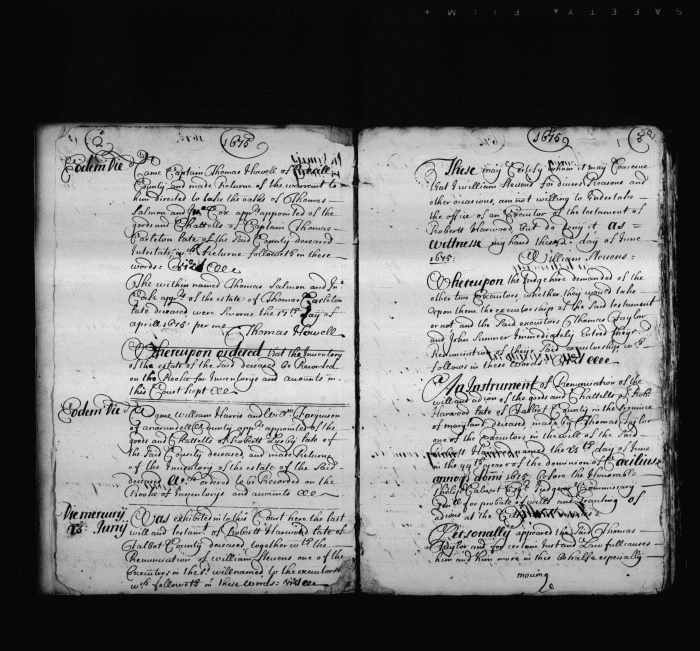 1675
Eodem Die
Came Captain Thomas Howell of
County and made Returne of the warrant to
him directed to take the oaths of Thomas
Salmon and Cox appr appointed of the
goods and Chattells of Captain Thomas
Carleton late of the Said County deceased
Intestate wch Returne followeth in these
words: vizt
The within named Thomas Salmon and Jno
apprs of the estate of Thomas Carleton
late deceased were Sworne the 17th day of
aprill 1675 per me
Thomas Howell
Whereupon ordered that the Inventory
of the estate of the Said deceased be Recorded
on the Booke for Inventorys and accounts in
this Court kept
Eodem Die
Came William Harris and Ferguson
of annarundell County apprs appointed of the
goods and Chattells of Robert Lusby late of
the Said County deceased and made Returne
of the Inventory of the estate of the Said
deceased ordered to be Recorded on the
Booke of Inventorys and accounts
Die mercurij
Junij
Was exhibited in this Court here the last
will and testamt of Robert Harwood late of
Talbot County deceased together wth the
Renunciation of William Stevens one of the
Executors in the sd will named to the executorsh
wch followeth in these words: vizt
1675
These may Certify whom it may Concerne
that I william Stevens for divers Reasons and
other occasions, am not willing to undertake
the office of an Executor of the testament of
Robert Harwood but do deny it as
wittness my hand these day of June
1675:
William Stevens:
Whereupon the Judge hier demanded of the
other two executors whether they would take
upon them the executorship of the Said testament
or not and the Said executors Thomas Taylor
and John Sumner Immediately Entred theyr
Renunciation executorship wch
follows in these words
An Instrument of Renunciation of the
will and adcon of the goods and Chattells of Robt
Harwood late of Talbot County in the Province
of maryland deceased, made by Thomas Taylor
one of the executors in the will of the Said
named the day of June
in the 44 yeare of the dominion of Caecilius
annoq domi 1675 before the Honorable
Philip Calvert Esqr Commissary
Genll for probate of wills and granting of
adcons at the
Personally appeared the Said Thomas
Taylor and for certain Just and Lawfull causes
him and him more in the behalfe especially
moving